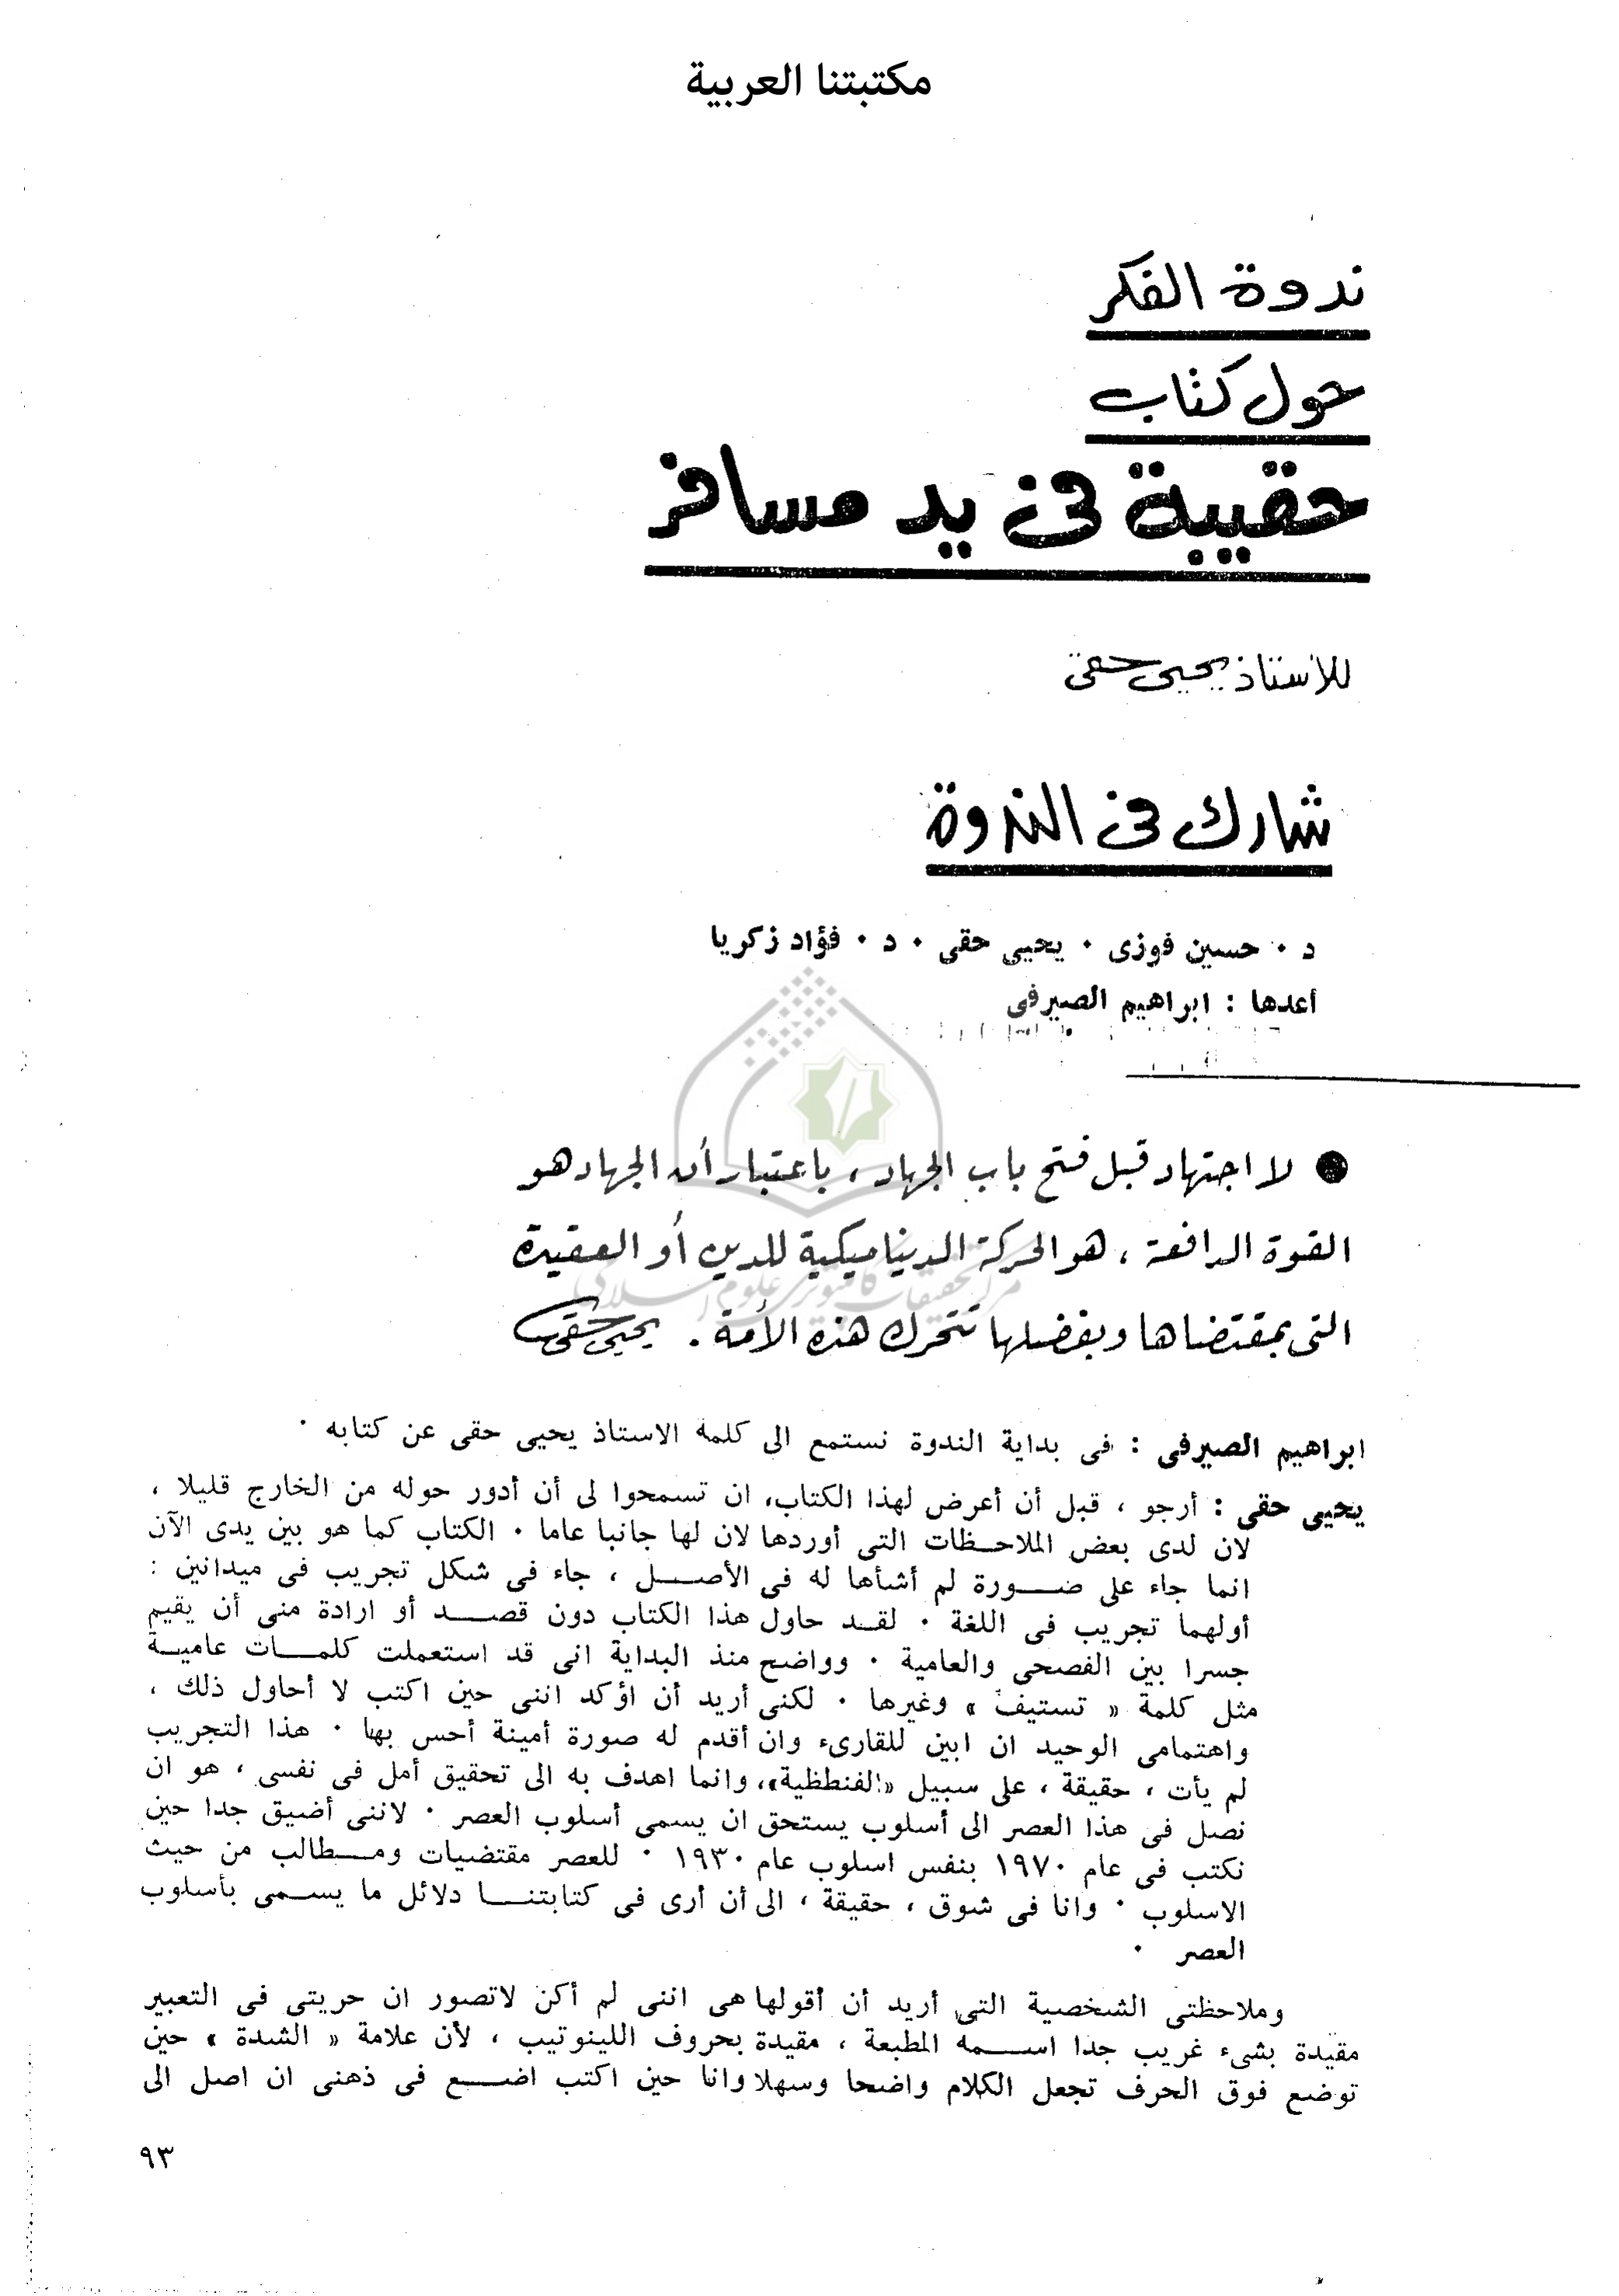 مكتبتنا العربية
ندوة الفكر
حول كتاب
حقيبة فى يد مسافر
للأستاذ يحيى حقى
شارك فى الندوة
د . حسين فوزى . يحيى حقى . د . فؤاد زكريا
أعدها : ابراهيم الصيرفى
● لا اجتهاد قبل فتح باب الجهاد ، باعتبار أن الجهاد هو
القوة الدافعة ، هو الحركة الديناميكية للدين أو العقيدة
التى بمقتضاها وبفضلها تتحرك هذه الأمة . يحيى حقى
مركز تحقيقات كامپيوترى علوم اسلامى
ابراهيم الصيرفى : فى بداية الندوة نستمع الى كلمة الاستاذ يحيى حقى عن كتابه .
يحيى حقى : أرجو ، قبل أن أعرض لهذا الكتاب، ان تسمحوا لى أن أدور حوله من الخارج قليلا ،
لان لدى بعض الملاحظات التى أوردها لان لها جانبا عاما . الكتاب كما هو بين يدى الآن
انما جاء على صورة لم أشأها له فى الأصل ، جاء فى شكل تجريب فى ميدانين :
أولهما تجريب فى اللغة . لقد حاول هذا الكتاب دون قصد أو ارادة منى أن يقيم
جسرا بين الفصحى والعامية . وواضح منذ البداية انى قد استعملت كلمات عامية
مثل كلمة « تستيف » وغيرها . لكنى أريد أن اؤكد اننى حين اكتب لا أحاول ذلك ،
واهتمامى الوحيد ان ابين للقارىء وان أقدم له صورة أمينة أحس بها . هذا التجريب
لم يأت ، حقيقة ، على سبيل «الفنطظية»، وانما اهدف به الى تحقيق أمل فى نفسى ، هو ان
نصل فى هذا العصر الى أسلوب يستحق ان يسمى أسلوب العصر . لاننى أضيق جدا حين
نكتب فى عام ١٩٧٠ بنفس اسلوب عام ١٩٣٠ . للعصر مقتضيات ومطالب من حيث
الاسلوب . وانا فى شوق ، حقيقة ، الى أن أرى فى كتابتنا دلائل ما يسمى بأسلوب
العصر .
وملاحظتى الشخصية التى أريد أن أقولها هى اننى لم أكن لاتصور ان حريتى فى التعبير
مقيدة بشىء غريب جدا اسمه المطبعة ، مقيدة بحروف اللينوتيب ، لأن علامة « الشدة » حين
توضع فوق الحرف تجعل الكلام واضحا وسهلا وانا حين اكتب اضع فى ذهنى ان اصل الى
٩٣